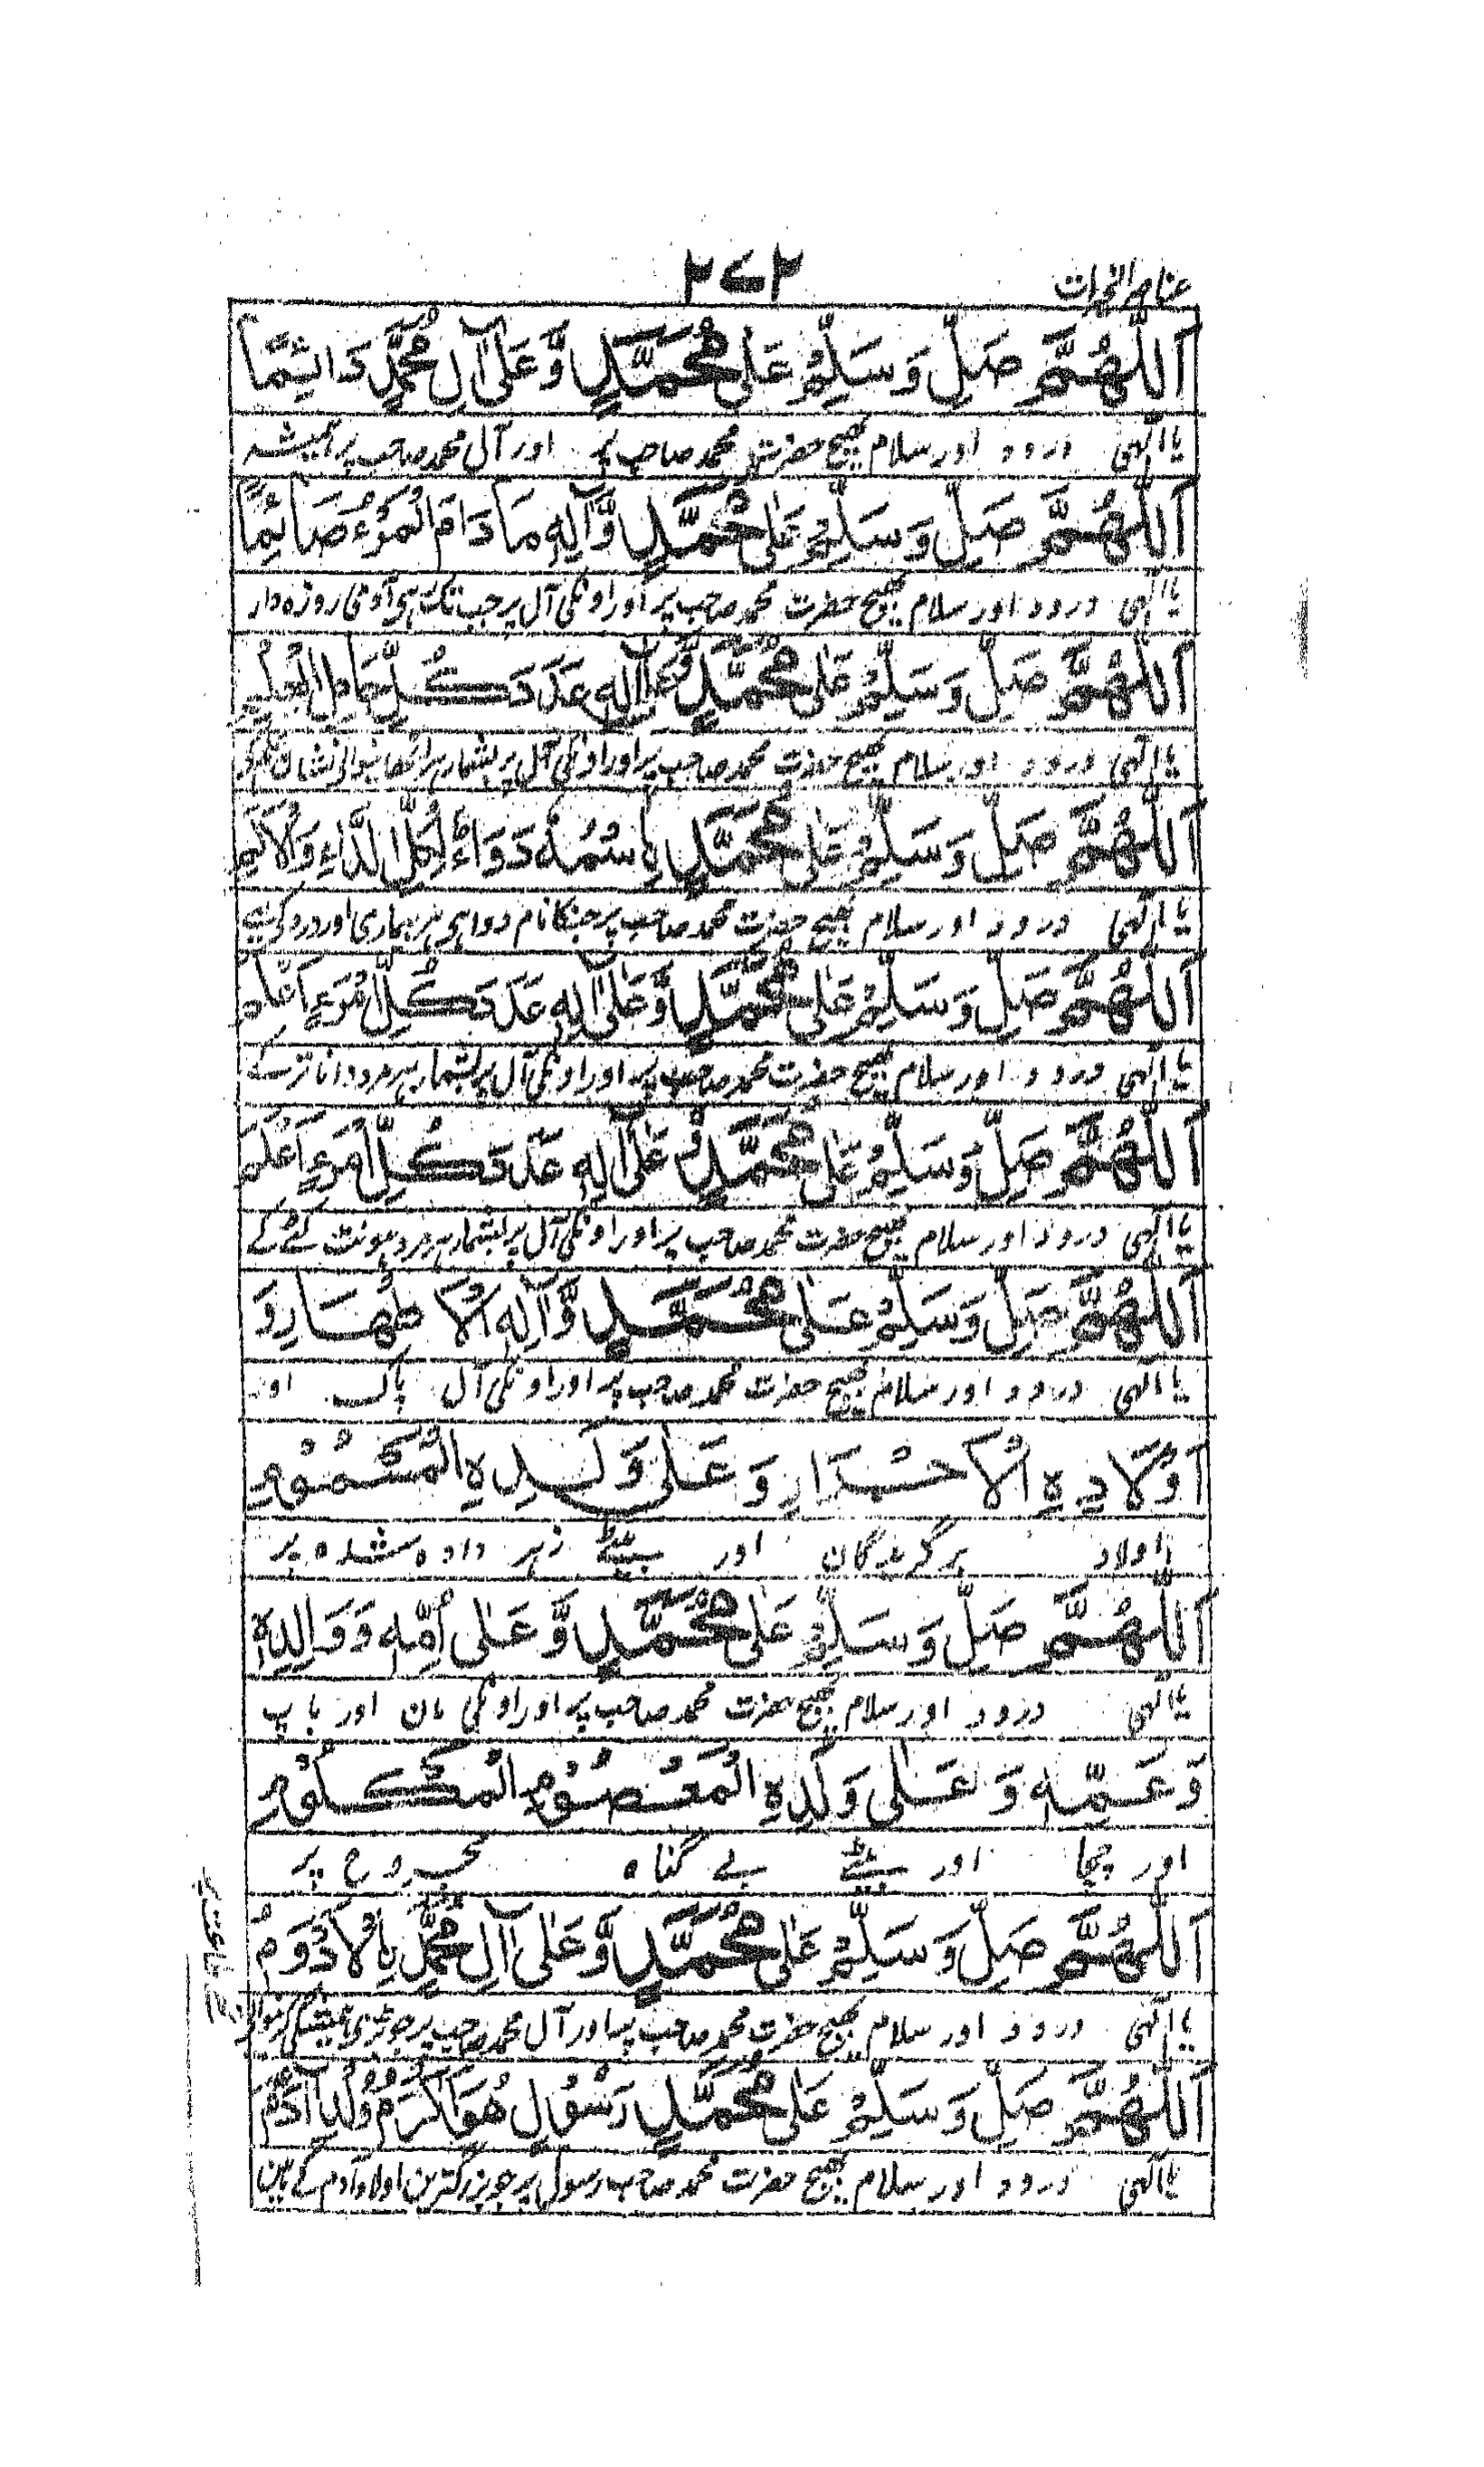 عناصر الخیرات
۲۷۲
اَللّٰهُمَّ صَلِّ وَسَلِّمْ عَلٰى مُحَمَّدٍ وَّعَلٰى اٰلِ مُحَمَّدٍ دَائِمًا
یا الٰہی درود اور سلام بھیج حضرت محمد صاحب پر اور آل محمد صاحب پر ہمیشہ
اَللّٰهُمَّ صَلِّ وَسَلِّمْ عَلٰى مُحَمَّدٍ وَّاٰلِهٖ مَا دَامَ الْمَرْءُ صَائِمًا
یا الٰہی درود اور سلام بھیج حضرت محمد صاحب پر اور اونکی آل پر جب تک ہی آدمی روزہ دار
اَللّٰهُمَّ صَلِّ وَسَلِّمْ عَلٰى مُحَمَّدٍ وَّعَلٰى اٰلِهٖ عَدَدَ كُلِّ حَامِلِ الْعَلَمِ
یا الٰہی درود اور سلام بھیج حضرت محمد صاحب پر اور اونکی آل پر بشمار ہر اوٹھانیوالی نشان
اَللّٰهُمَّ صَلِّ وَسَلِّمْ عَلٰى مُحَمَّدٍ اِسْمُهٗ دَوَاءٌ لِكُلِّ الدَّاءِ وَالْاَلَمِ
یا الٰہی درود اور سلام بھیج حضرت محمد صاحب پر جنکا نام دوا ہی ہر بیماری اور درد کیلئے
اَللّٰهُمَّ صَلِّ وَسَلِّمْ عَلٰى مُحَمَّدٍ وَّعَلٰى اٰلِهٖ عَدَدَ كُلِّ امْرَءٍ اَعْلَمَ
یا الٰہی درود اور سلام بھیج حضرت محمد صاحب پر اور اونکی آل پر بشمار ہر مرد دانا تر کے
اَللّٰهُمَّ صَلِّ وَسَلِّمْ عَلٰى مُحَمَّدٍ وَّعَلٰى اٰلِهٖ عَدَدَ كُلِّ امْرَءٍ اَعْلَمَ
یا الٰہی درود اور سلام بھیج حضرت محمد صاحب پر اور اونکی آل پر بشمار ہر مرد ہونٹ کٹے کے
اَللّٰهُمَّ صَلِّ وَسَلِّمْ عَلٰى مُحَمَّدٍ وَّاٰلِهِ الْاَطْهَارِ وَ
یا الٰہی درود اور سلام بھیج حضرت محمد صاحب پر اور اونکی آل پاک اور
اَوْلَادِهِ الْاَحْرَارِ وَعَلٰى وَلَدِهِ الْمَسْمُوْمِ
اولاد برگزیدگان اور بیٹے زہر دادہ شدہ پر
اَللّٰهُمَّ صَلِّ وَسَلِّمْ عَلٰى مُحَمَّدٍ وَّعَلٰى اُمِّهٖ وَوَالِدِهٖ
یا الٰہی درود اور سلام بھیج حضرت محمد صاحب پر اور اونکی مان اور باپ
وَعَمِّهٖ وَعَلٰى وَلَدِهِ الْمَعْصُوْمِ الْمَكْلُوْمِ
اور چچا اور بیٹے بے گناہ مجروح پر
اَللّٰهُمَّ صَلِّ وَسَلِّمْ عَلٰى مُحَمَّدٍ وَّعَلٰى اٰلِ مُحَمَّدٍ بِالْاَدْوَمِ
یا الٰہی درود اور سلام بھیج حضرت محمد صاحب پر اور آل محمد صاحب پر
اَللّٰهُمَّ صَلِّ وَسَلِّمْ عَلٰى مُحَمَّدٍ رَسُوْلٍ هُوَ اَكْرَمُ وُلْدِ اٰدَمَ
یا الٰہی درود اور سلام بھیج حضرت محمد صاحب رسول پر جو بزرگترین اولاد آدم کے ہین